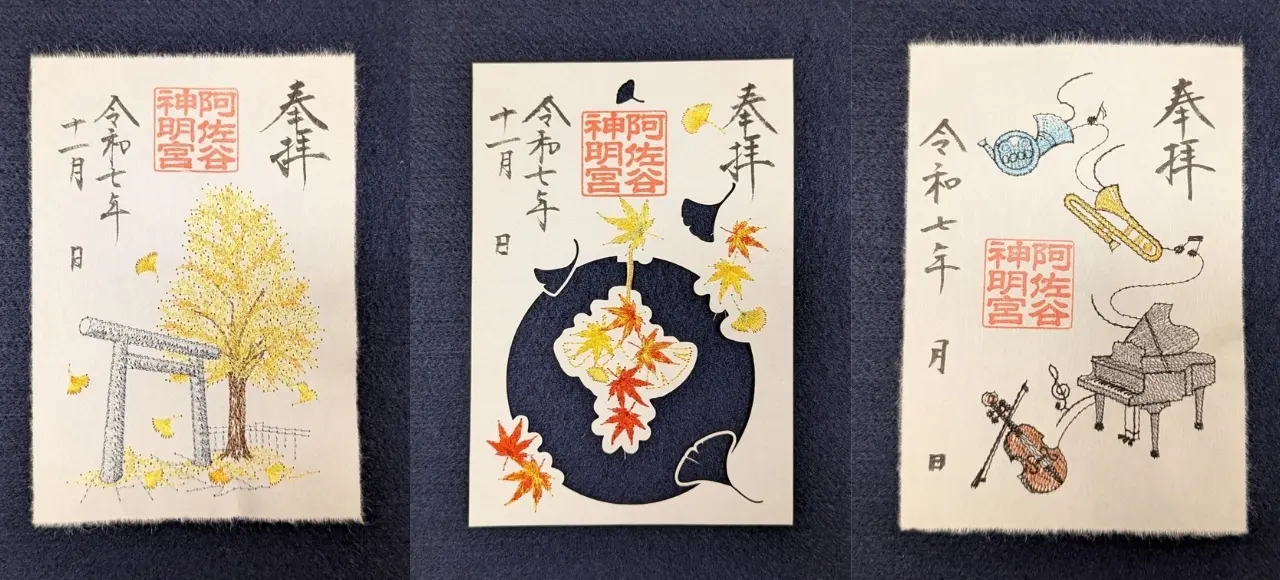 奉拝
阿佐谷
神明宮
令和七年
十一月
日
奉拝
阿佐谷
神明宮
令和七年
十一月
日
奉拝
阿佐谷
神明宮
令和七年
月
日